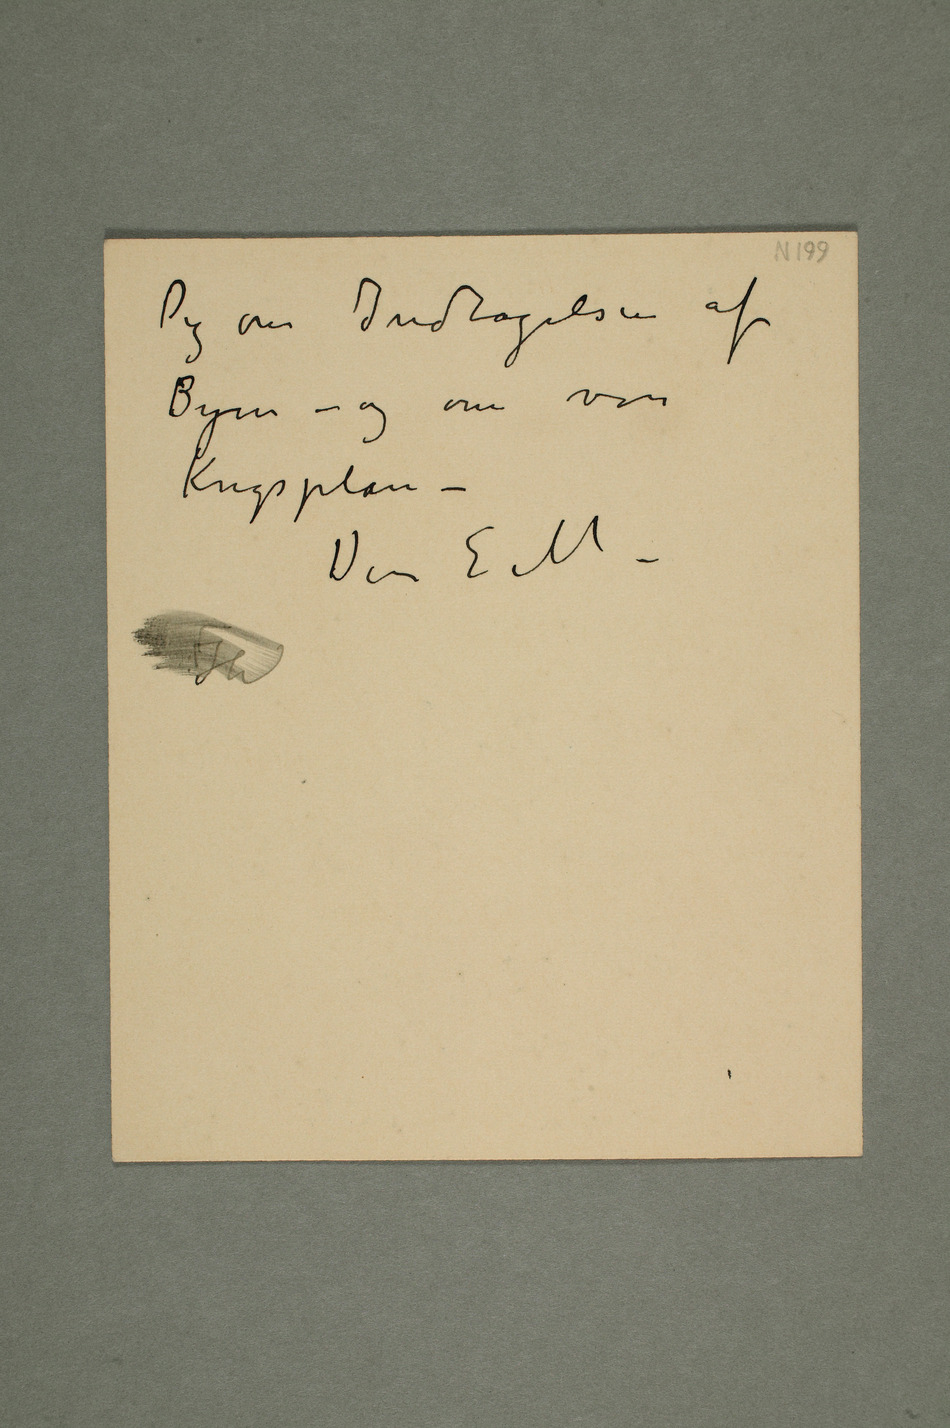 N 199
Dig om Indtagelsen af
Byen – og om vor
Krigsplan –
Din E. M –